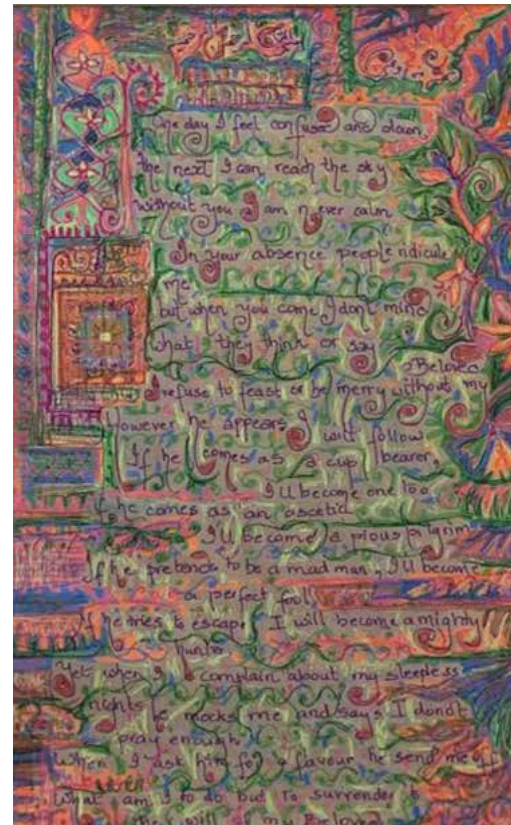 One day I feel confused and down,
the next I can reach the sky
without you I am never calm
In your absence people ridicule
me
but when you come I don't mind
what they think or say
Beloved
I refuse to feast or be merry without my
However he appears I will follow
If he comes as a cup bearer,
I'll become one too
If he comes as an ascetic
I'll become a pious pilgrim
If he pretends to be a mad man, I'll become
a perfect fool
If he tries to escape I will become a mighty
hunter.
Yet when I complain about my sleepless
nights he mocks me and says I donot
pray enough.
When I ask him for a favour he send me off
What am I to do but to surrender to
the will of my Beloved